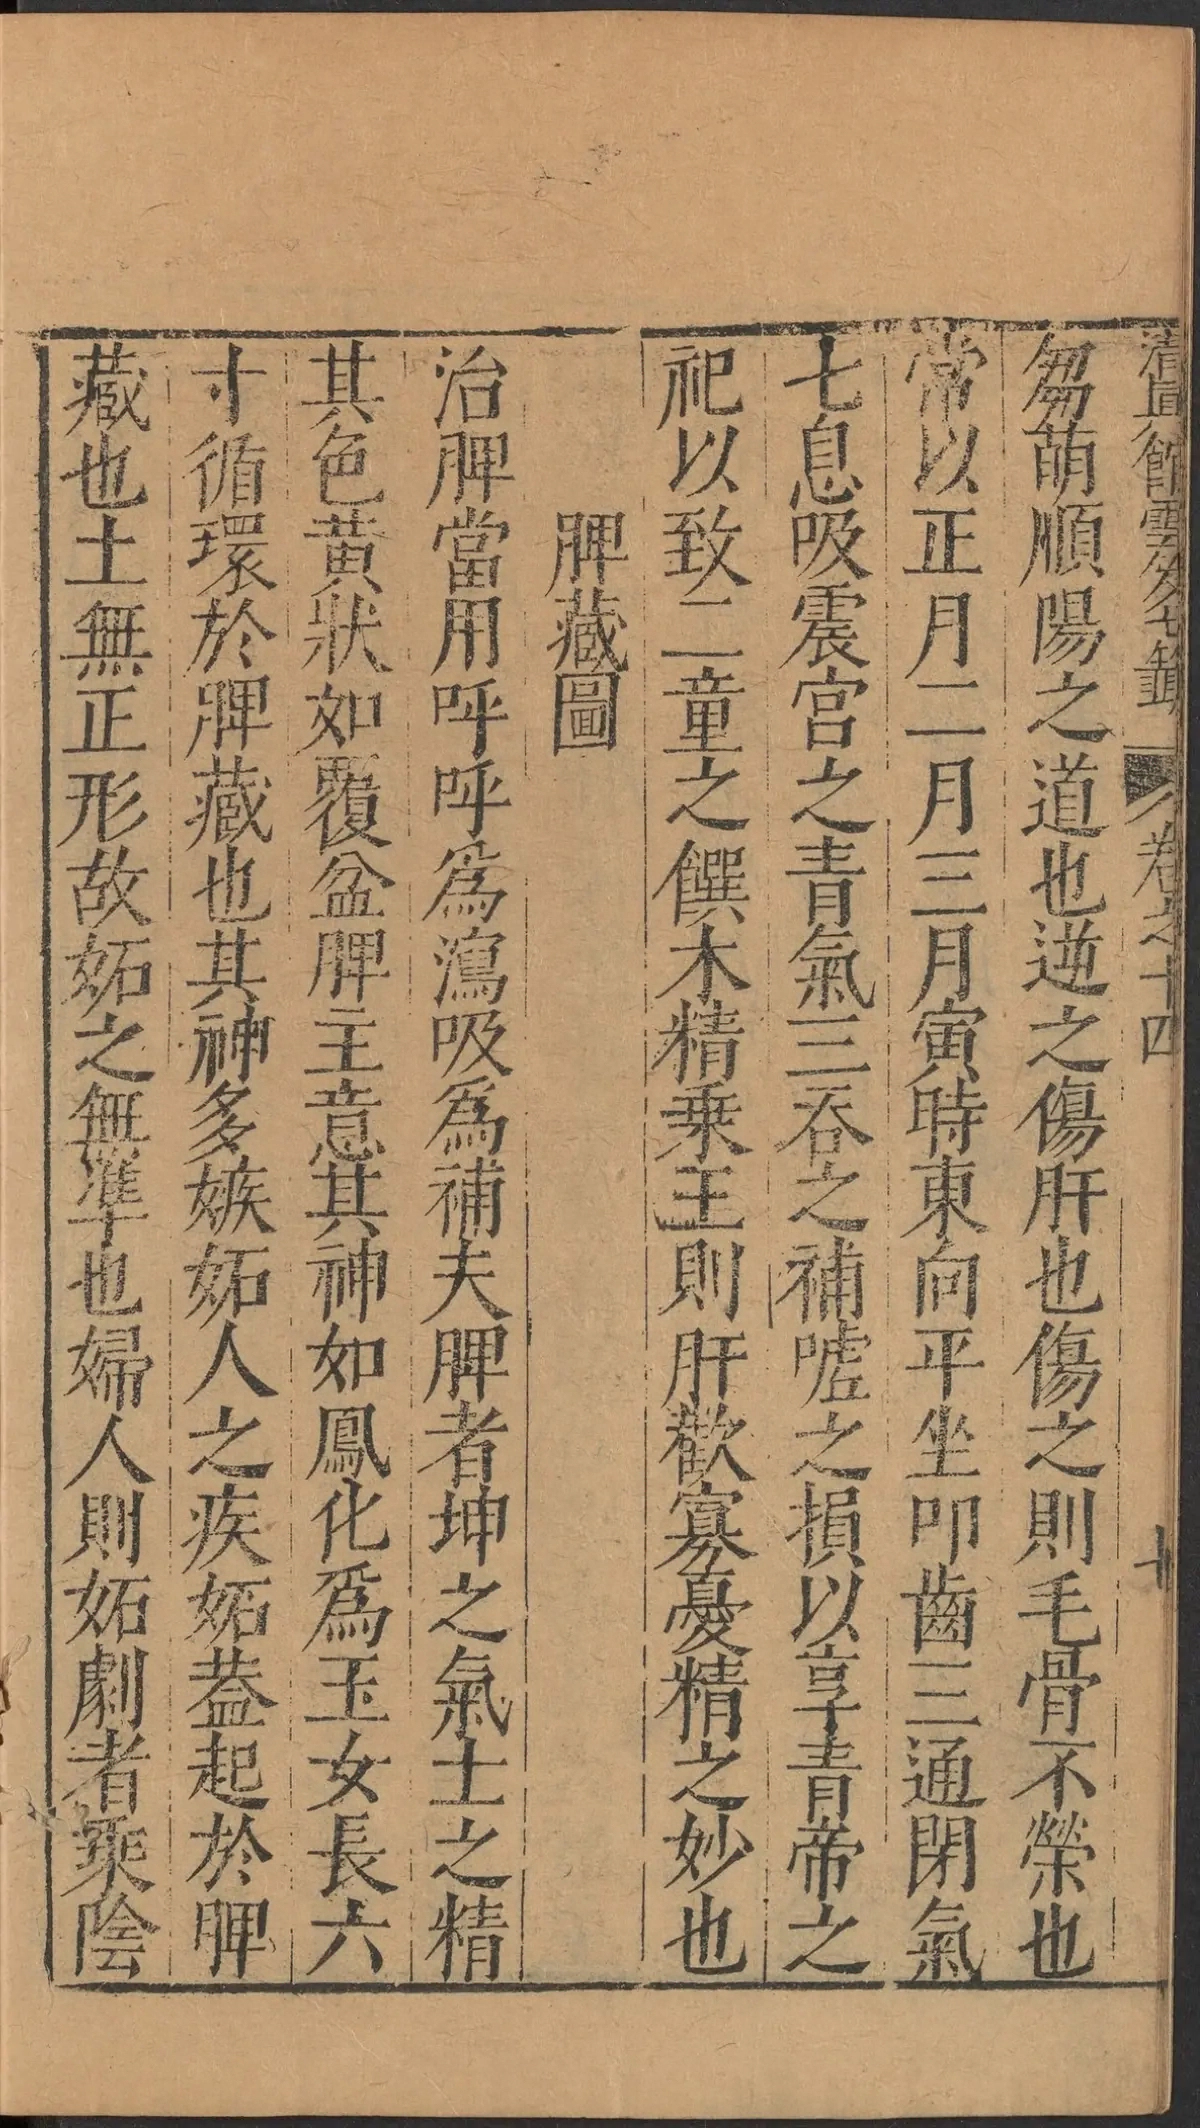 清真館雲笈七籤 卷之十四 十
芻萌順陽之道也逆之傷肝也傷之則毛骨不榮也
常以正月二月三月寅時東向平坐叩齒三通閉氣
七息吸震宮之青氣三吞之補噓之損以享青帝之
祀以致二童之饌木精乗王則肝歡寡憂精之妙也
脾藏圖
治脾當用呼呼爲瀉吸爲補夫脾者坤之氣土之精
其色黄狀如覆盆脾主意其神如鳳化爲玉女長六
寸循環於脾藏也其神多嫉妬人之疾妬蓋起於脾
藏也土無正形故妬之無準也婦人則妬劇者乗陰